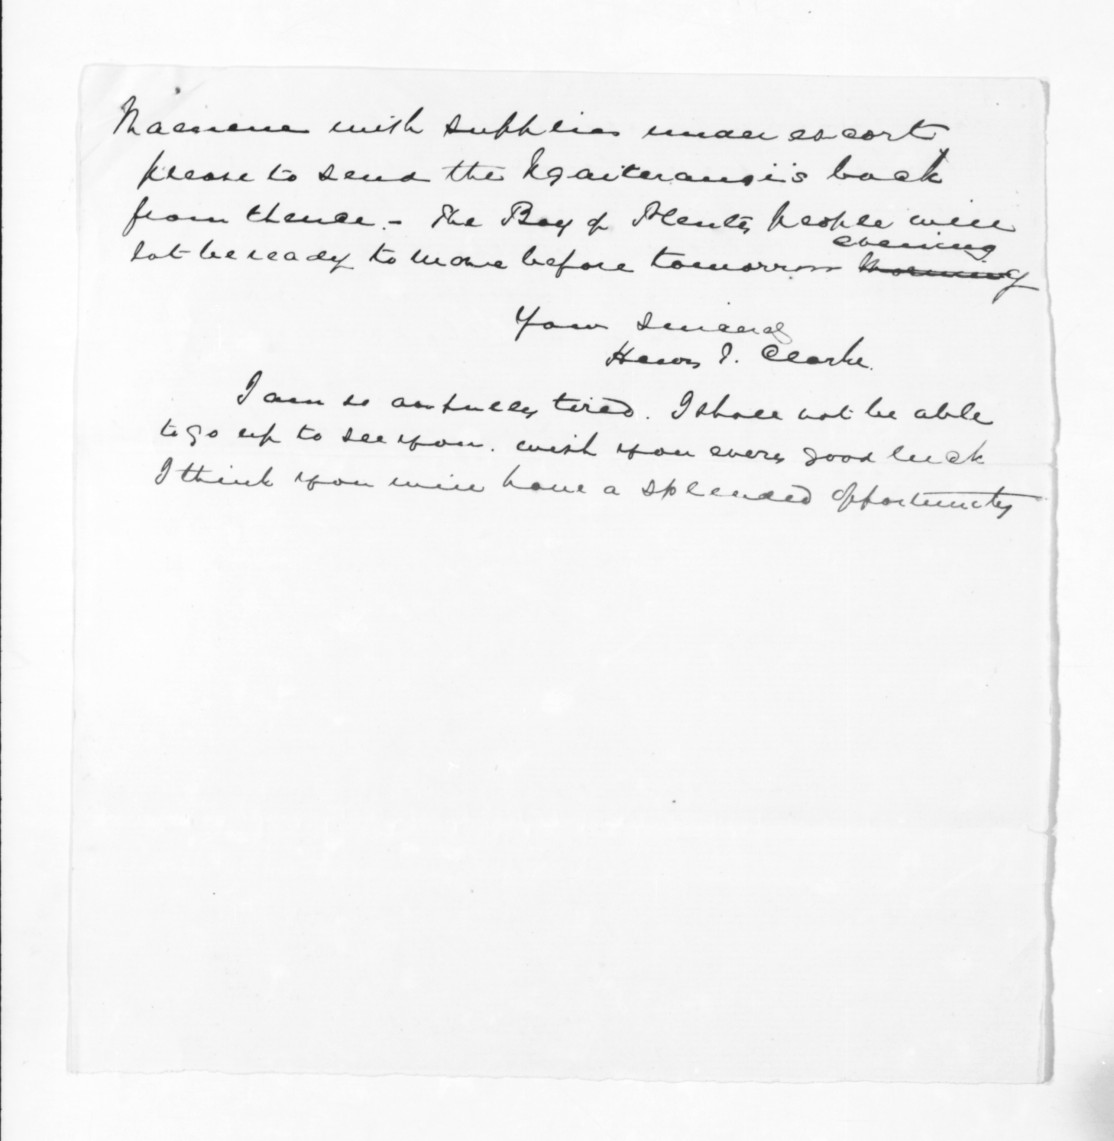 with supplies under escort
please to send the Ngaiterangi's back
from thence. - The Bay of Plenty people will
not be ready to move before tomorrow evening ~~morning~~
Yours sincerely
Henry T. Clarke.
I am so awfully tired. I shall not be able
to go up to see you. wish you every good luck
I think you will have a splended opportunity